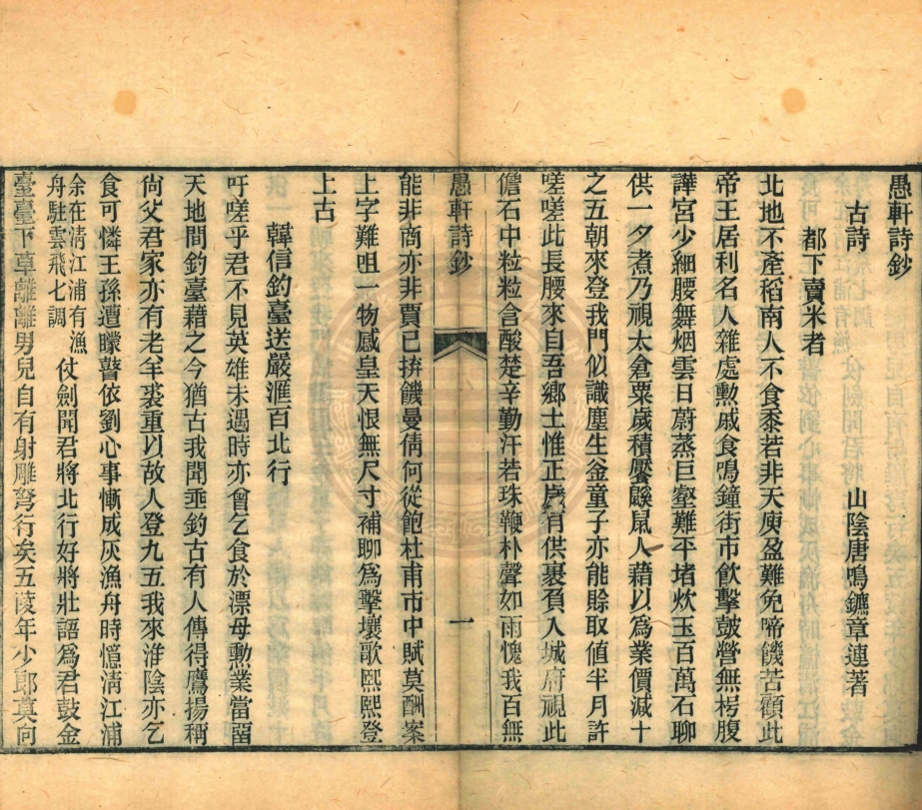 愚軒詩鈔
古詩　山陰唐鳴鑣章連著
都下賣米者
北地不產稻南人不食黍若非天庾盈難免啼饑苦顧此
帝王居利名人雜處勲戚食鳴鐘街市飲擊皷營無枵腹
譁宮少細腰舞烟雲日蔚蒸巨壑難平堵炊玉百萬石聊
供一夕煮乃視太倉粟歲積饜鼷鼠人藉以爲業價減十
之五朝來登我門似識塵生釜童子亦能賒取値半月許
嗟嗟此長腰來自吾鄉土惟正歲有供裹負入城府視此
儋石中粒粒含酸楚辛勤汗若珠鞭朴聲如雨愧我百無
愚軒詩鈔　一
能非商亦非賈已拚饑曼倩何從飽杜甫市中賦莫酬案
上字難咀一物感皇天恨無尺寸補聊爲擊壤歌熙熙登
上古
韓信釣臺送嚴滙百北行
吁嗟乎君不見英雄未遇時亦會乞食於漂母勲業當留
天地間釣臺藉之今猶古我聞垂釣古有人傳得鷹揚稱
尙父君家亦有老羊裘重以故人登九五我來淮陰亦乞
食可憐王孫遭矇瞽依劉心事慚成灰漁舟時憶淸江浦
余在淸江浦有漁
舟駐雲飛七調
仗劍聞君將北行好將壯語爲君鼓金
臺臺下草離離男兒自有射雕弩行矣五陵年少郞莫向